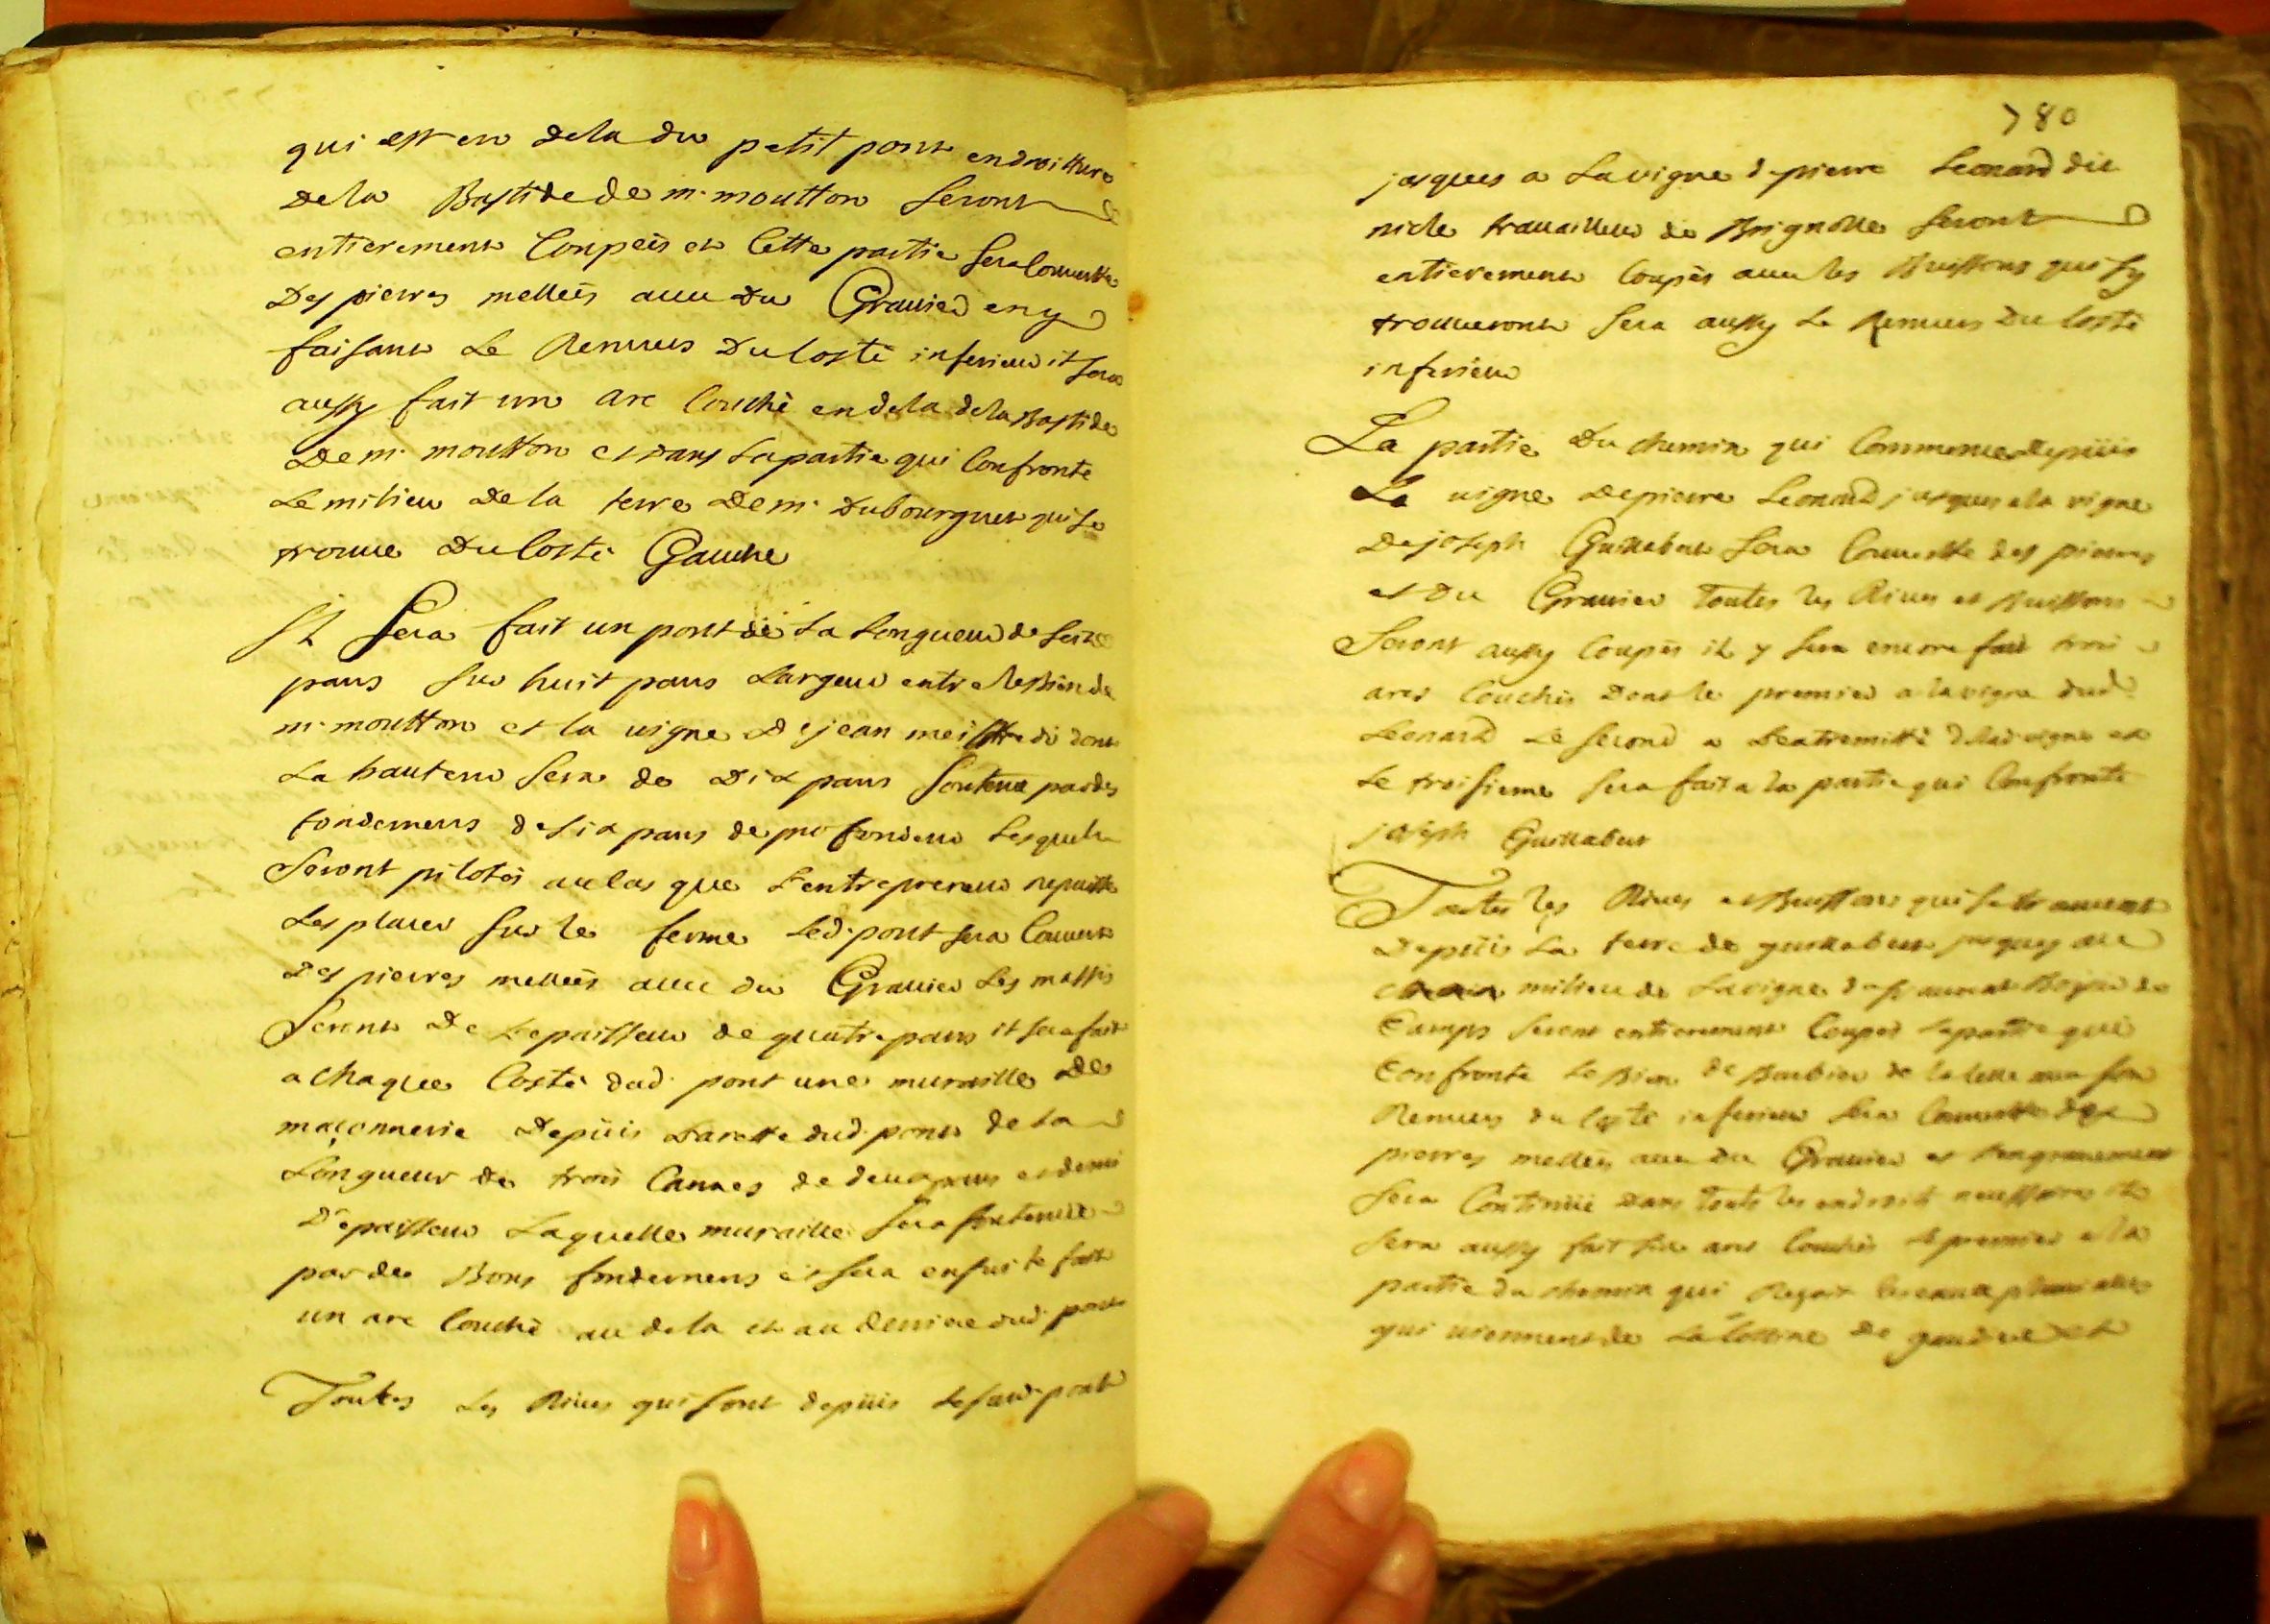 qui est en dela du petit pont endroitture
Dela Bastide de mr moutton Seront
entierement Coupeés et Cette partie Sera Couverte
Des pierres melleés avec du Gravier en y
faisant Le Renvers Du Costé inferieur il sera
aussy fait un arc Couché en dela dela Bastide
De mr moutton et dans La partie qui Confronte
Le milieu De la terre De mr Dubourguet qui Se
trouve Du Costé Gauche
Il Sera fait un pont de La Longueur de Seize
pans Sur huit pans Largeur entre le Bien de
mr moutton et la vigne De jean meistre di dont
La hauteur Sera de Dix pans Soutenu par des
fondemens de Six pans de profondeur Lesquels
Seront pilotés au cas que L'entrepreneur ne puisse
Les placer Sur le ferme Led. pont sera Couvert
Des pierres melleés avec du Gravier Les massifs
Seront De L'epaisseur de quatre pans il sera fait
a Chaque Costé dud. pont une muraille De
maçonnerie Depuis Larette dud. pont de La
Longueur de trois Cannes de deux pans et demi
D'epaisseur Laquelle muraille Sera soutenüe
par des Bons fondemens et Sera ensuite fait
un arc Couché au dela et au derriere dud. pont
Toutes Les Rives qui Sont depuis Le susd. pont
780
jusques a La vigne de pierre Leonard dit
nicle travailleur de Brignolle Seront
entierement Coupés avec les Buissons qui Sy
trouveront Sera aussy Le Renvers Du Costé
inferieur
La partie Du chemin qui Commence Depuis
La vigne De pierre Leonard jusques a la vigne
De joseph Guillabert Sera Couverte des pierres
et Du Gravier Toutes les Rives et Buissons
Seront aussy Coupés il y Sera encore fait trois
arcs Couchés Dont le premier a la vigne dud.
Leonard Le Second a L'extremitté de lad. vigne et
Le troisieme Sera fait a la partie qui Confronte
joseph Guillabert
Toutes les Rives et Buissons qui se trouvent
Depuis La terre de guillabert jusques au
milieu de La vigne de Boyer de
Camps Seront entierement Coupés La partie qui
Confronte Le Bien de Barbier de la Celle avec son
Renvers du Costé inferieur Sera Couverte des
pierres melleés avec Du Gravier et L'engravement
Sera Continüé Dans Touts les endroits necessaires il
Sera aussy fait Six arcs Couchés Le premier a la
partie du chemin qui Reçoit les eaux pluviales
qui viennent de La Colline De et